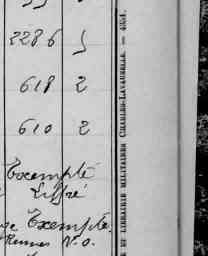 2286 5
618 2
610 2
Exempté
Liffré
Exempté
Rennes N.O.
ET LIBRAIRIE MILITAIRES CHARLES-LAVAUZELLE. —